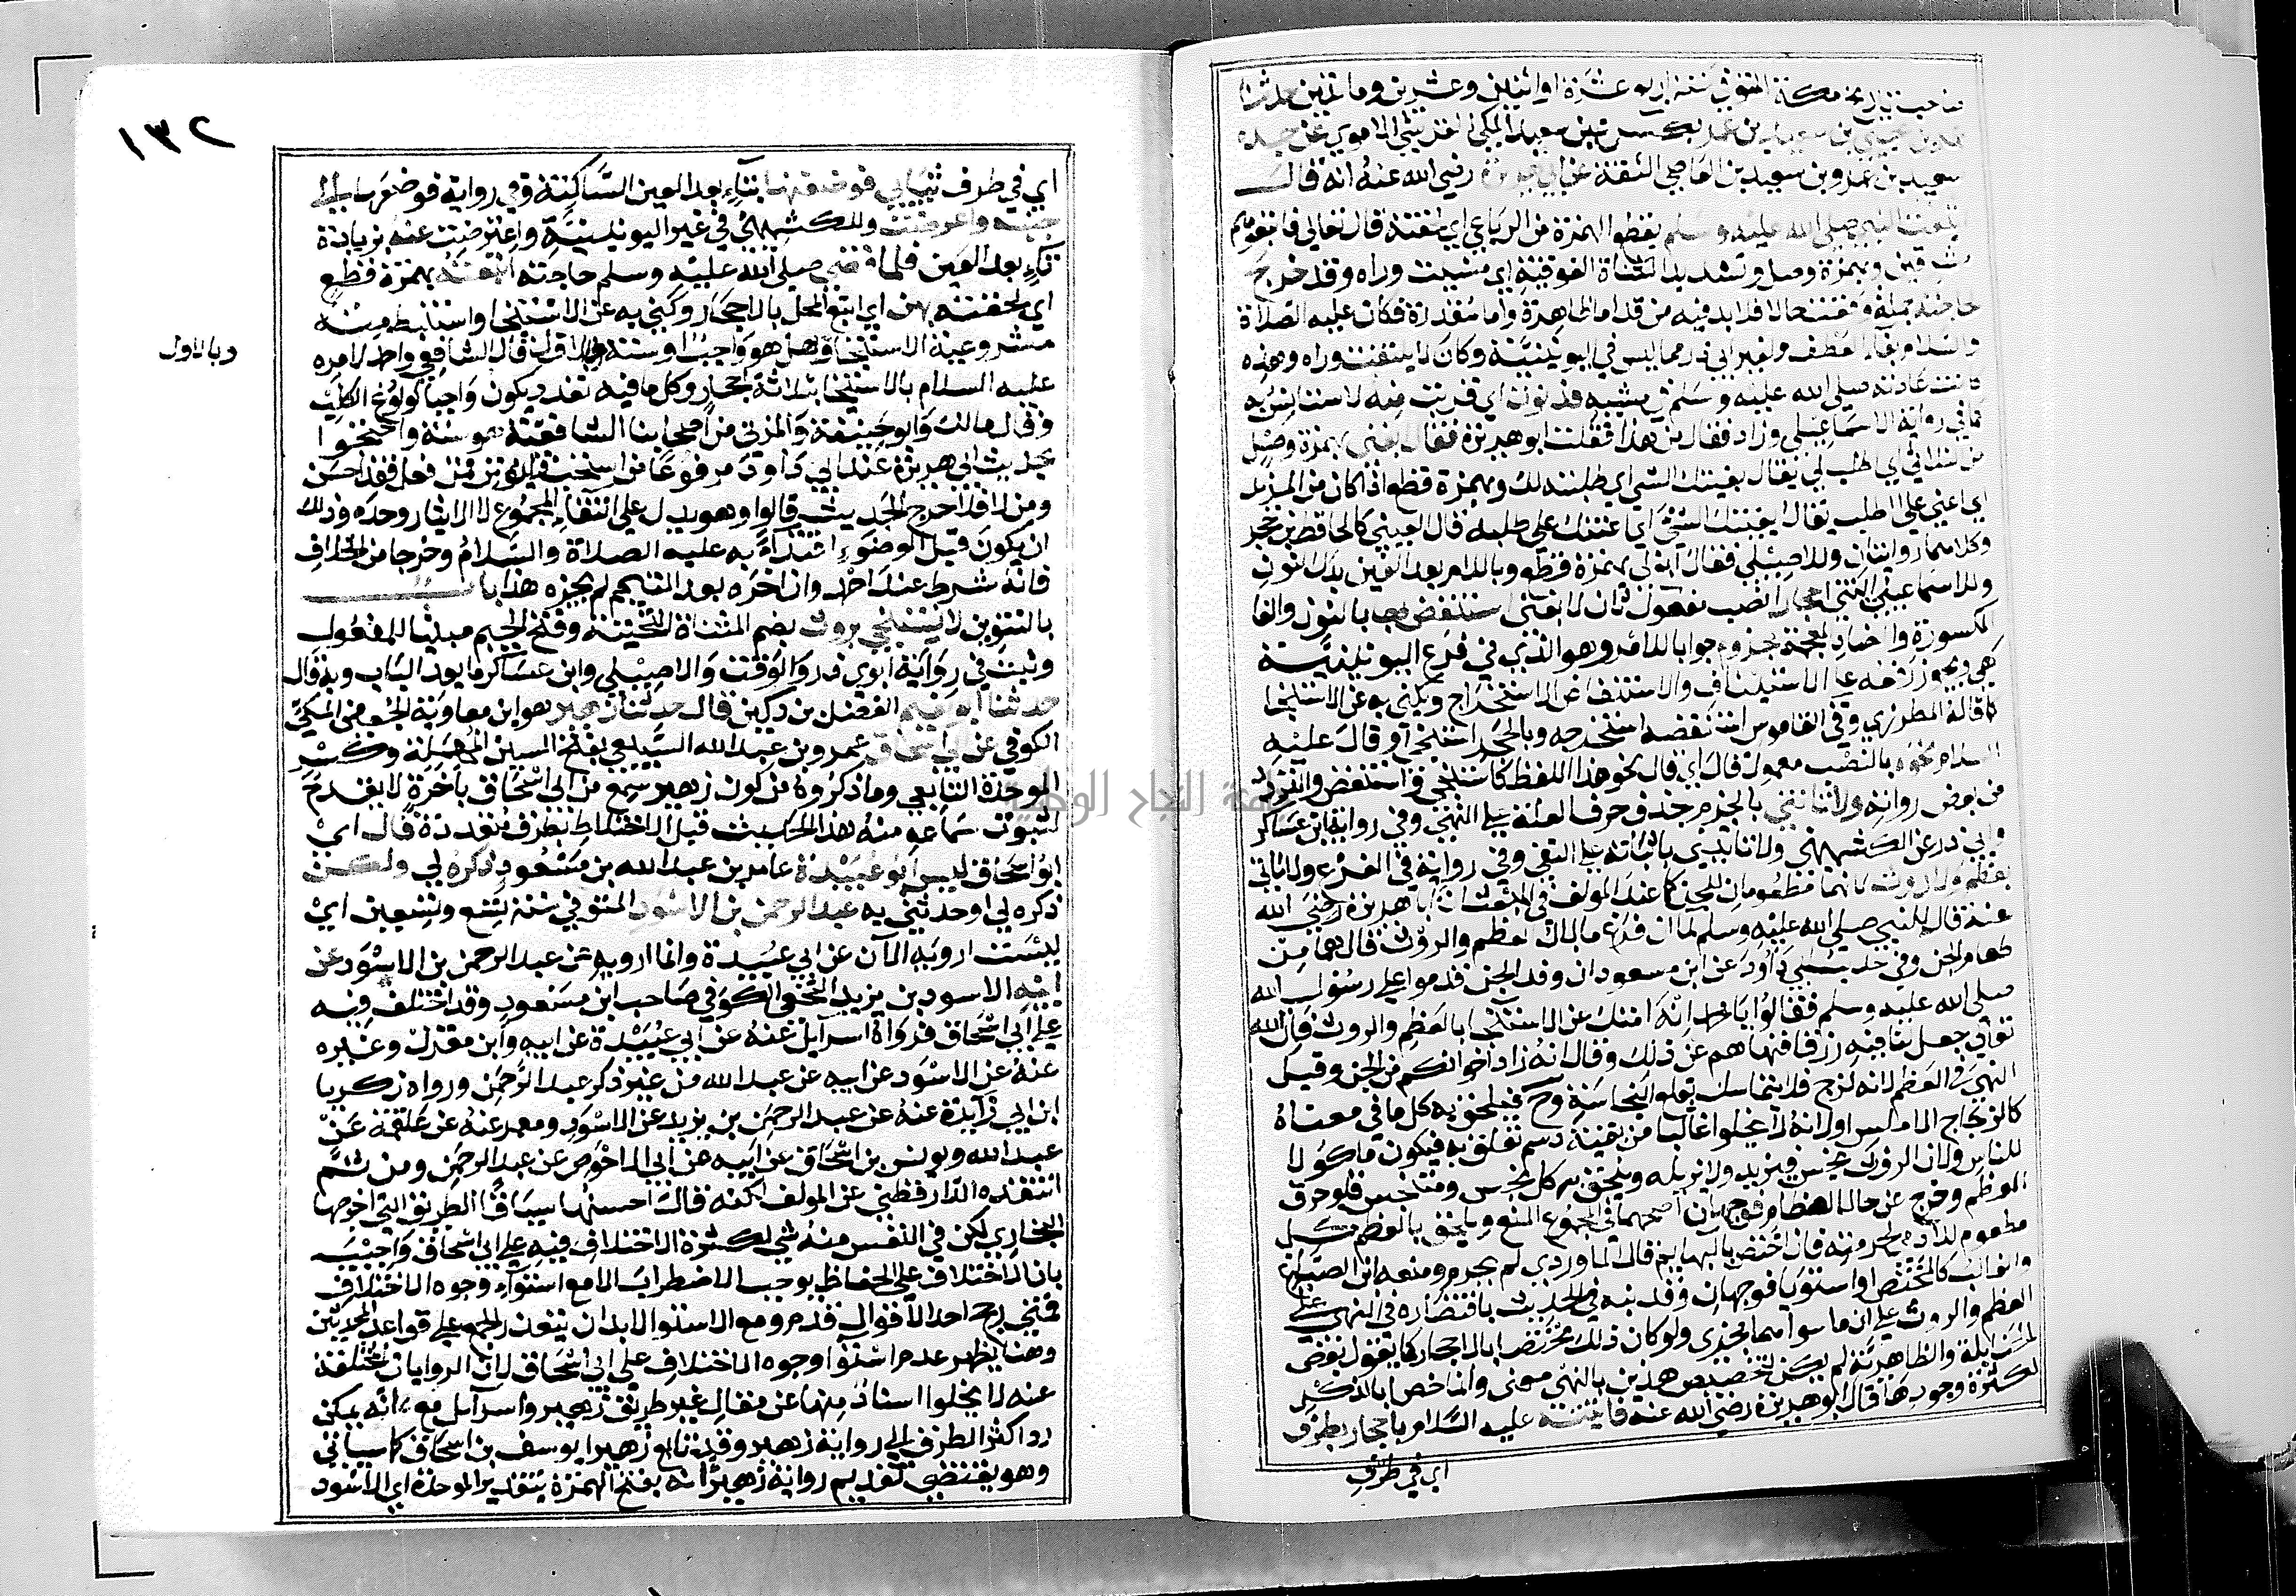 صاحب تاريخ مكة المتوفي سنة اربع عشرة او اثنين وعشرين ومايتين حدثنا
عمرو بن يحيي بن سعيد بن عمرو بكسر عين سعيد المكي القرشي الاموي عن جده
سعيد بن عمرو بن سعيد بن العاصي الثقة عن ابي هريرة رضي الله عنه انه قال
اتبعت النبي صلي الله عليه وسلم بقطع الهمزة من الرباعي اي لحقته قال تعالي فاتبعوهم
مشرقين وبهمزة وصل وتشديد المثناة الفوقية اي مشيت وراه وقد خرج
حاجته جملة وقعت حالا فلا بد فيه من قد اما ظاهرة واما مقدرة فكان عليه الصلاة
والسلام بفاء العطف ولغير ابي ذر مما ليس في اليونينية وكان لا يلتفت وراه وهذه
كانت عادته صلي الله عليه وسلم في مشيه فدنوت اي قربت منه لاستانس به
كما في رواية الاسماعيلي وزاد فقال من هذا فقلت ابو هريرة فقال ابغني بهمزة وصل
من الثلاثي اي اطلب لي يقال بغيتك الشي اي طلبته لك وبهمزة قطع اذا كان من المزيد
اي اعني علي الطلب يقال ابغيتك الشي اي اعنتك علي طلبه قال العيني كالحافظ بن حجر
وكلاهما روايتان وللاصيلي فقال ابغ لي بهمزة قطع وباللام بعد الغين بدل النون
وللاسماعيلي ائتني احجارا نصب مفعول ثان لابغني استنفض بها بالنون والفا
المكسورة والضاد المعجمة مجزوم جوابا للامر وهو الذي في فرع اليونينية
كهي ويجوز رفعه علي الاستيناف والاستنفاض الاستخراج ويكني به عن الاستنجا
كما قاله المطرزي وفي القاموس استنفضه استخرجه وبالحجر استنجي او قال عليه
السلام نحوه بالنصب مفعول قال اي قال نحو هذا اللفظ كاستنجي او استنفض والتردد
من بعض رواته ولا تاتني بالجزم بحذف حرف العلة علي النهي وفي رواية ابن عساكر
وابي ذر عن الكشميهني ولا تاتيني باثباته علي النفي وفي رواية في الفرع ولا تاتي
بعظم ولا روث لانهما مطعومان للجن كما عند المولف في المبعث ان ابا هريرة رضي الله
عنه قال للنبي صلي الله عليه وسلم لما ان فرغ ما بال العظم والروث قال هما من
طعام الجن وفي حديث ابي داود عن ابن مسعود ان وفد الجن قدموا علي رسول الله
صلي الله عليه وسلم فقالوا يا محمد انه امتك عن الاستنجا بالعظم والروث فان الله
تعالي جعل لنا فيه رزقا فنهاهم عن ذلك وقال انه زاد اخوانكم من الجن وقيل
النهي في العظم لانه لزج فلا يتماسك لقطع النجاسة وح فيلحق به كل ما في معناه
كالزجاج الاملس او لانه لا يخلوا غالبا من بقية دسم تعلق به فيكون ماكولا
للناس ولان الروث نجس فيزيد ولا يزيله ويلحق به كل نجس ومتنجس فلو حرق
العظم وخرج عن حال العظام فوجهان اصحهما في المجموع المنع ويلحق بالعظم كل
مطعوم للادمي لحرمته فان اختص بالبهايم قال الماوردي لم يحرم ومنعه ابن الصباغ
والغالب كالمختص او استويا فوجهان وقد نبه في الحديث باقتصاره في النهي علي
العظم والروث علي ان ما سواهما يجزي ولو كان ذلك مختصا بالاحجار كما يقول بعض
الحنابلة والظاهرية لم يكن لتخصيص هذين بالنهي معني وانما خص بالذكر
لكثرة وجودها قال ابو هريرة رضي الله عنه فاتيته عليه السلام باحجار بطرف
اي في طرف
١٣٢
اي في طرف ثيابي فوضعتها بتاء بعد العين الساكنة وفي رواية فوضعها الي
جنبه واعرضت وللكشميهني في غير اليونينية واعترضت عنه بزيادة
تاء بعد العين فلما قضي صلي الله عليه وسلم حاجته اتبعته بهمزة قطع
اي لحقته بهن اي اتبع المحل بالاحجار وكني به عن الاستنجا واستنبط منه
مشروعية الاستنجا وهل هو واجب او سنة وبالاول قال الشافعي واحمد لامره
وبالاول
عليه السلام بالاستنجا بثلاثة احجار وكل ما فيه تعدد يكون واجبا كولوغ الكلب
وقال مالك وابو حنيفة والمزني من اصحابنا الشافعية هو سنة واحتجوا
بحديث ابي هريرة عند ابي داود مرفوعا من استجمر فليوتر من فعل فقد احسن
ومن لا فلا حرج الحديث قالوا وهو يدل علي انتفاء المجموع لا الايتار وحده وذلك
ان يكون قبل الوضوء اقتداء به عليه الصلاة والسلام وخروجا من الخلاف
فانه شرط عند احمد وان اخره بعد التيمم لم يجزه هذا باب
بالتنوين لا يستنجي بروث بضم المثناة التحتية وفتح الجيم مبنيا للمفعول
وثبت في رواية ابوي ذر والوقت والاصيلي وابن عساكر ما بعد الباب وبه قال
حدثنا ابو نعيم الفضل بن دكين قال حدثنا زهير هو ابن معاوية الجعفي المكي
الكوفي عن ابي اسحاق عمرو بن عبد الله السبيعي بفتح السين المهملة وكسر
الموحدة التابعي وما ذكروه من كون زهير سمع من ابي اسحاق باخرة لا يقدح
لثبوت سماعه منه هذا الحديث قبل الاختلاط بطرق متعددة قال اي
ابو اسحاق ليس ابو عبيدة عامر بن عبد الله بن مسعود ذكره لي ولكن
ذكره لي او حدثني به عبد الرحمن بن الاسود المتوفي سنة تسع وتسعين اي
ليست ارويه الان عن ابي عبيدة وانما ارويه عن عبد الرحمن بن الاسود عن
ابيه الاسود بن يزيد النخعي الكوفي صاحب ابن مسعود وقد اختلف فيه
علي ابي اسحاق فرواه اسرايل عنه عن ابي عبيدة عن ابيه وابن مغول وغيره
عنه عن الاسود عن ابيه عن عبد الله من غير ذكر عبد الرحمن ورواه زكريا
ابن ابي زايدة عنه عن عبد الرحمن بن يزيد عن الاسود ومعمر عنه عن علقمة عن
عبد الله ويونس بن اسحاق عن ابيه عن ابي الاحوص عن عبد الرحمن ومن ثم
انتقده الدارقطني عن المولف لكنه قال احسنها سياقا الطريق التي اخرجها
البخاري لكن في النفس منه شي لكثرة الاختلاف فيه علي ابي اسحاق واجيب
بان الاختلاف علي الحفاظ يوجب الاضطراب الا مع استواء وجوه الاختلاف
فمتي رجح احد الاقوال قدم ومع الاستوا لا بد ان يتعذر الجمع علي قواعد المحدثين
وهنا يظهر عدم استوا وجوه الاختلاف علي ابي اسحاق لان الروايات المختلفة
عنه لا يخلوا اسناد منها عن مقال غير طريق زهير واسرايل مع انه يمكن
رد اكثر الطرق الي رواية زهير وقد تابع زهيرا يوسف بن اسحاق كما سياتي
وهو يقتضي تقديم رواية زهير انه بفتح الهمزة بتقدير الموحدة اي الاسود